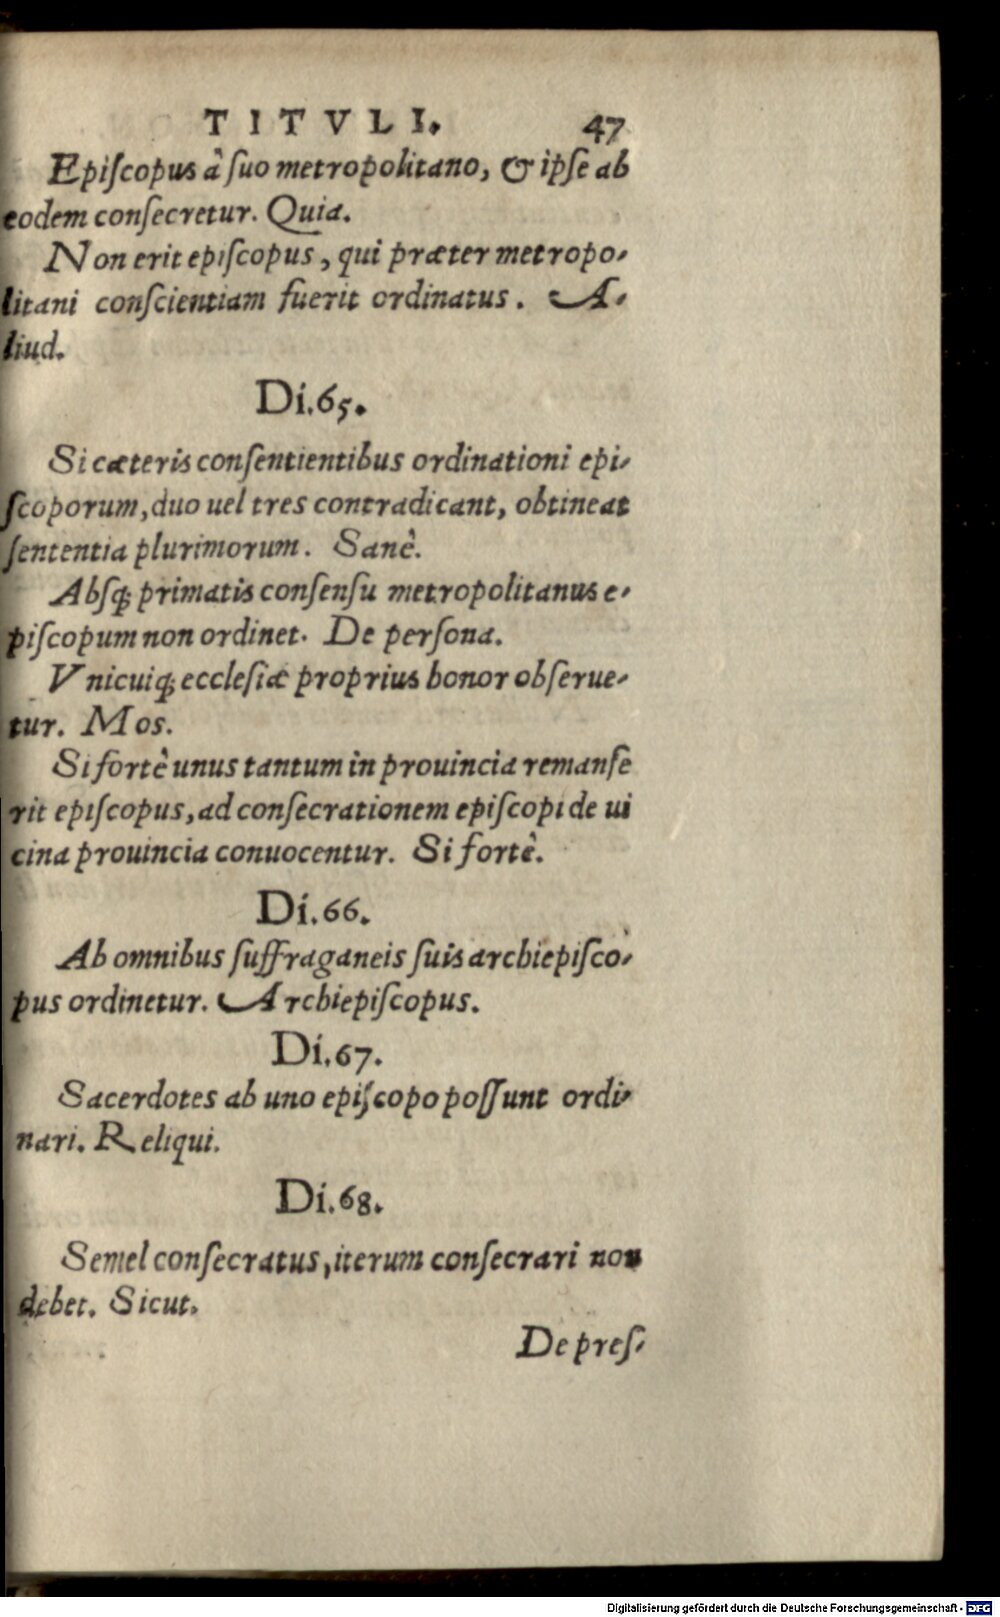 TITVLI. 47
Epiſcopus à ſuo metropolitano, & ipſe ab
eodem conſecretur. Quia.
Non erit epiſcopus, qui præter metropo-
litani conſcientiam fuerit ordinatus. A-
liud.
Di.65.
Si cæteris conſentientibus ordinationi epi-
ſcoporum, duo uel tres contradicant, obtineat
ſententia plurimorum. Sanè.
Abſq; primatis conſenſu metropolitanus e-
piſcopum non ordinet. De perſona.
Vnicuiq; eccleſiæ proprius honor obſerue-
tur. Mos.
Si fortè unus tantum in prouincia remanſe
rit epiſcopus, ad conſecrationem epiſcopi de ui
cina prouincia conuocentur. Si fortè.
Di.66.
Ab omnibus ſuffraganeis ſuis archiepiſco-
pus ordinetur. Archiepiſcopus.
Di.67.
Sacerdotes ab uno epiſcopo poſſunt ordi-
nari. Reliqui.
Di.68.
Semel conſecratus, iterum conſecrari non
debet. Sicut.
De preſ-
Digitalisierung gefördert durch die Deutsche Forschungsgemeinschaft - DFG